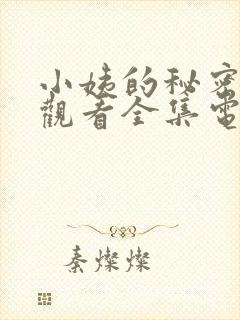 小姨的秘密
觀看全集電
秦燦燦